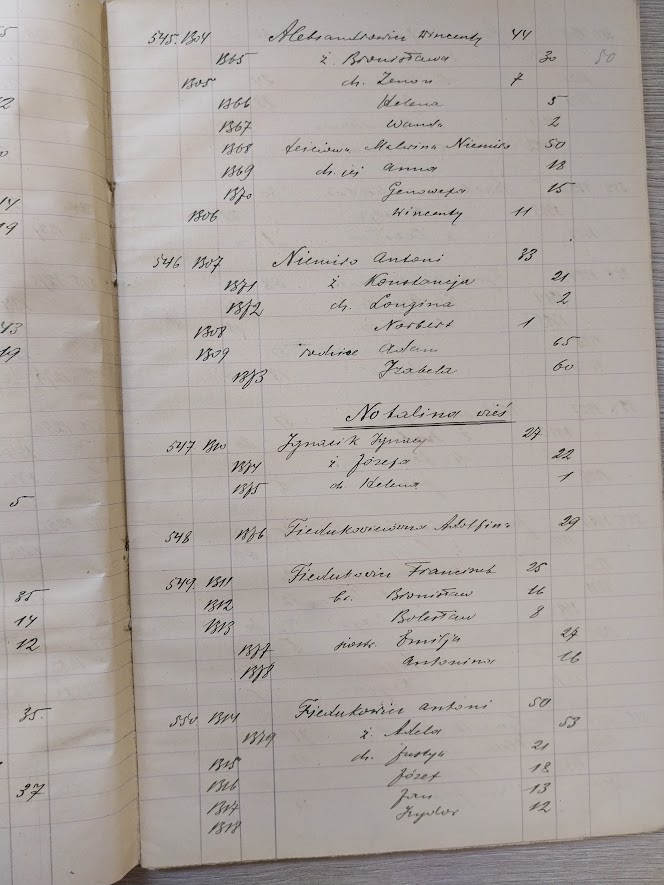 545. 1304 Aleksandrowicz Wincenty 44
1365 ż. Bronisława 30 50
1305 dz. Zenon 7
1366 Helena 5
1367 Wanda 2
1368 teściowa Melwina Niemiro 50
1369 dz. jej Anna 18
1370 Genowefa 15
1306 Wincenty 11
546 1307 Niemiro Antoni 33
1371 ż. Konstancja 21
1372 dz. Longina 2
1308 Norbert 1
1309 rodzice Adam 65
1373 Izabela 60
Notalina wieś
547 1310 Ignacik Ignacy 27
1374 ż. Józefa 22
1375 dz. Helena 1
548 1376 Fiedukowiczówna Adolfina 29
549. 1311 Fiedukowicz Franciszek 25
1312 br. Bronisław 16
1313 Bolesław 8
1377 siostr. Emilja 27
1378 Antonina 16
550 1314 Fiedukowicz Antoni 50
1379 ż. Adela 53
1315 dz. Justyn 21
1316 Józef 18
1317 Jan 13
1318 Izydor 12
5
14
19
43
19
5
35
14
12
35.
37